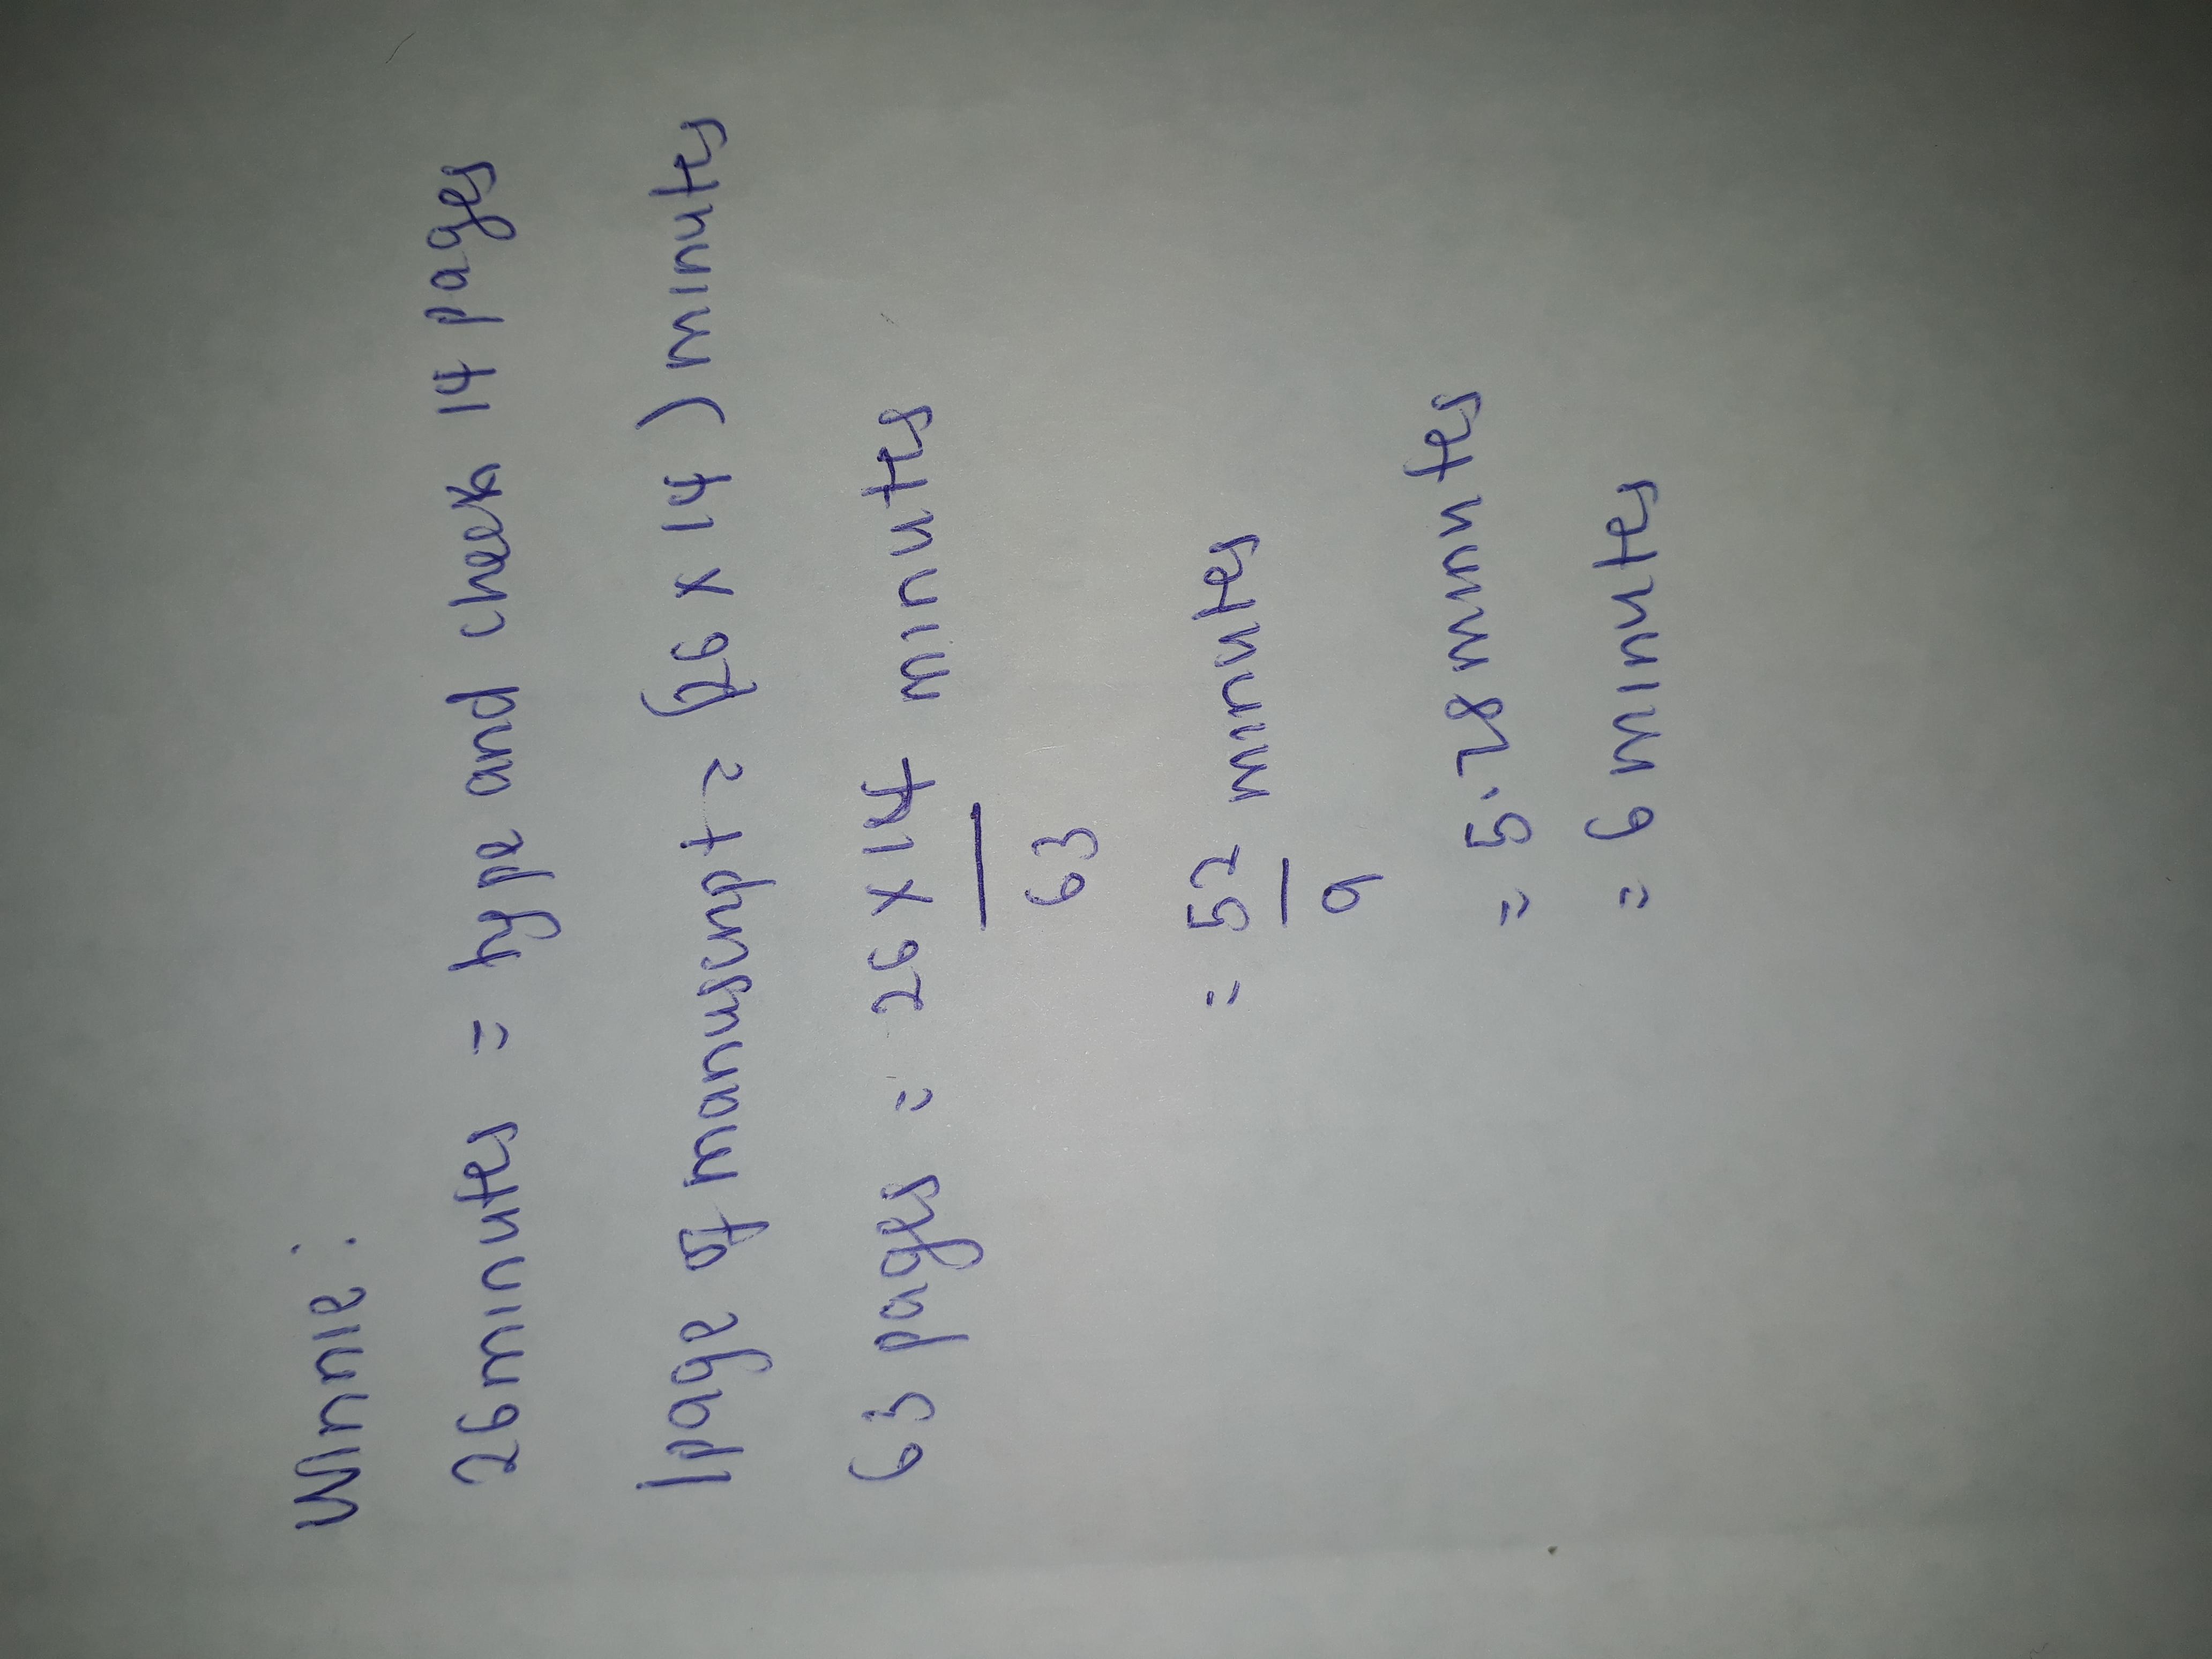 Winnie :
26 minutes = type and check 14 pages
1 page of manuscript = (26 x 14) minutes
63 pages = 26 x 14 minutes
63
= 52 minutes
9
= 5.78 minutes
= 6 minutes